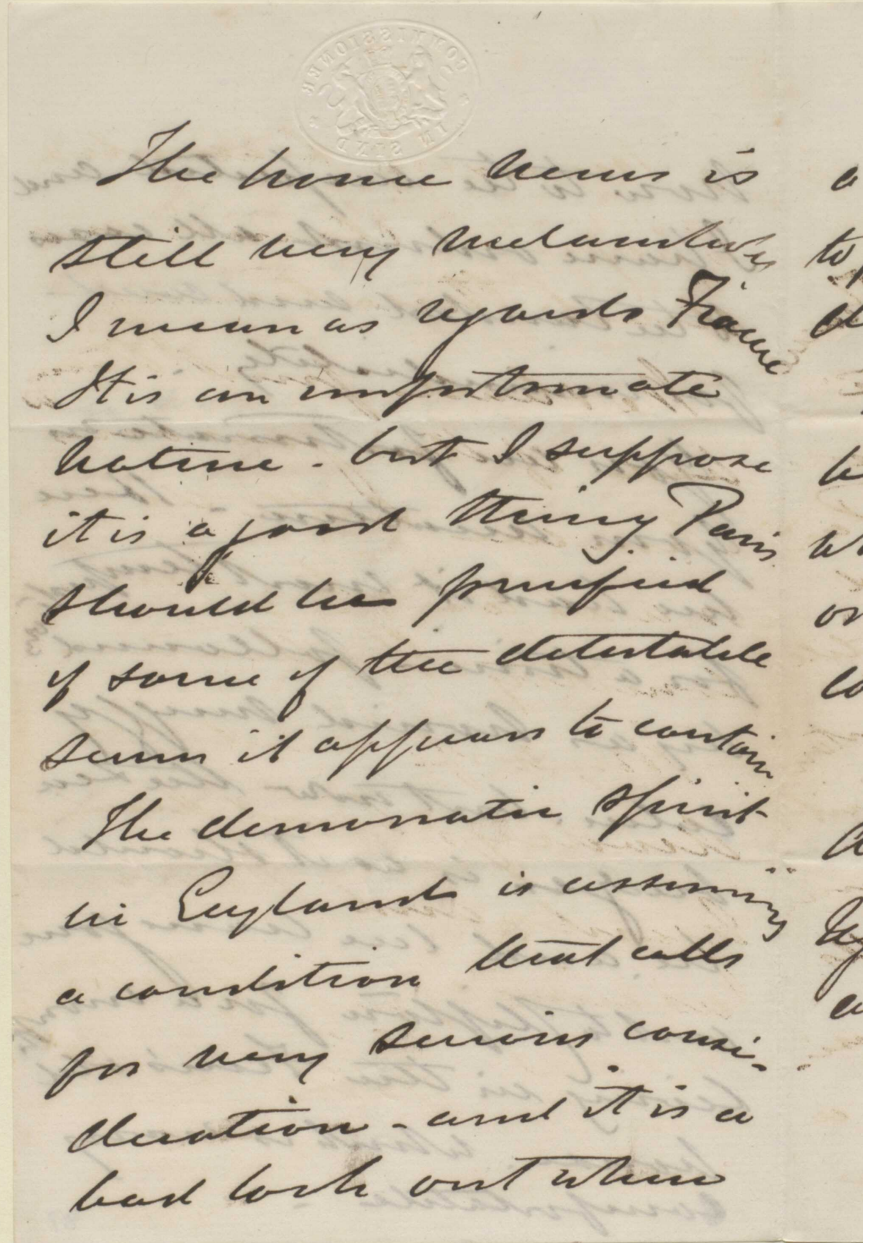 COMMISSIONER
IN SIND
The home news is
still very melancholy
I mean as regards France
It is an unfortunate
nation - but I suppose
it is a good thing Paris
should be purified
of some of the detestable
scum it appears to contain
The democratic spirit
in England is assuming
a condition that calls
for very serious consi-
deration - and it is a
bad look out when